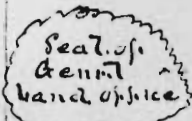 Seal of
Genrl
Land office